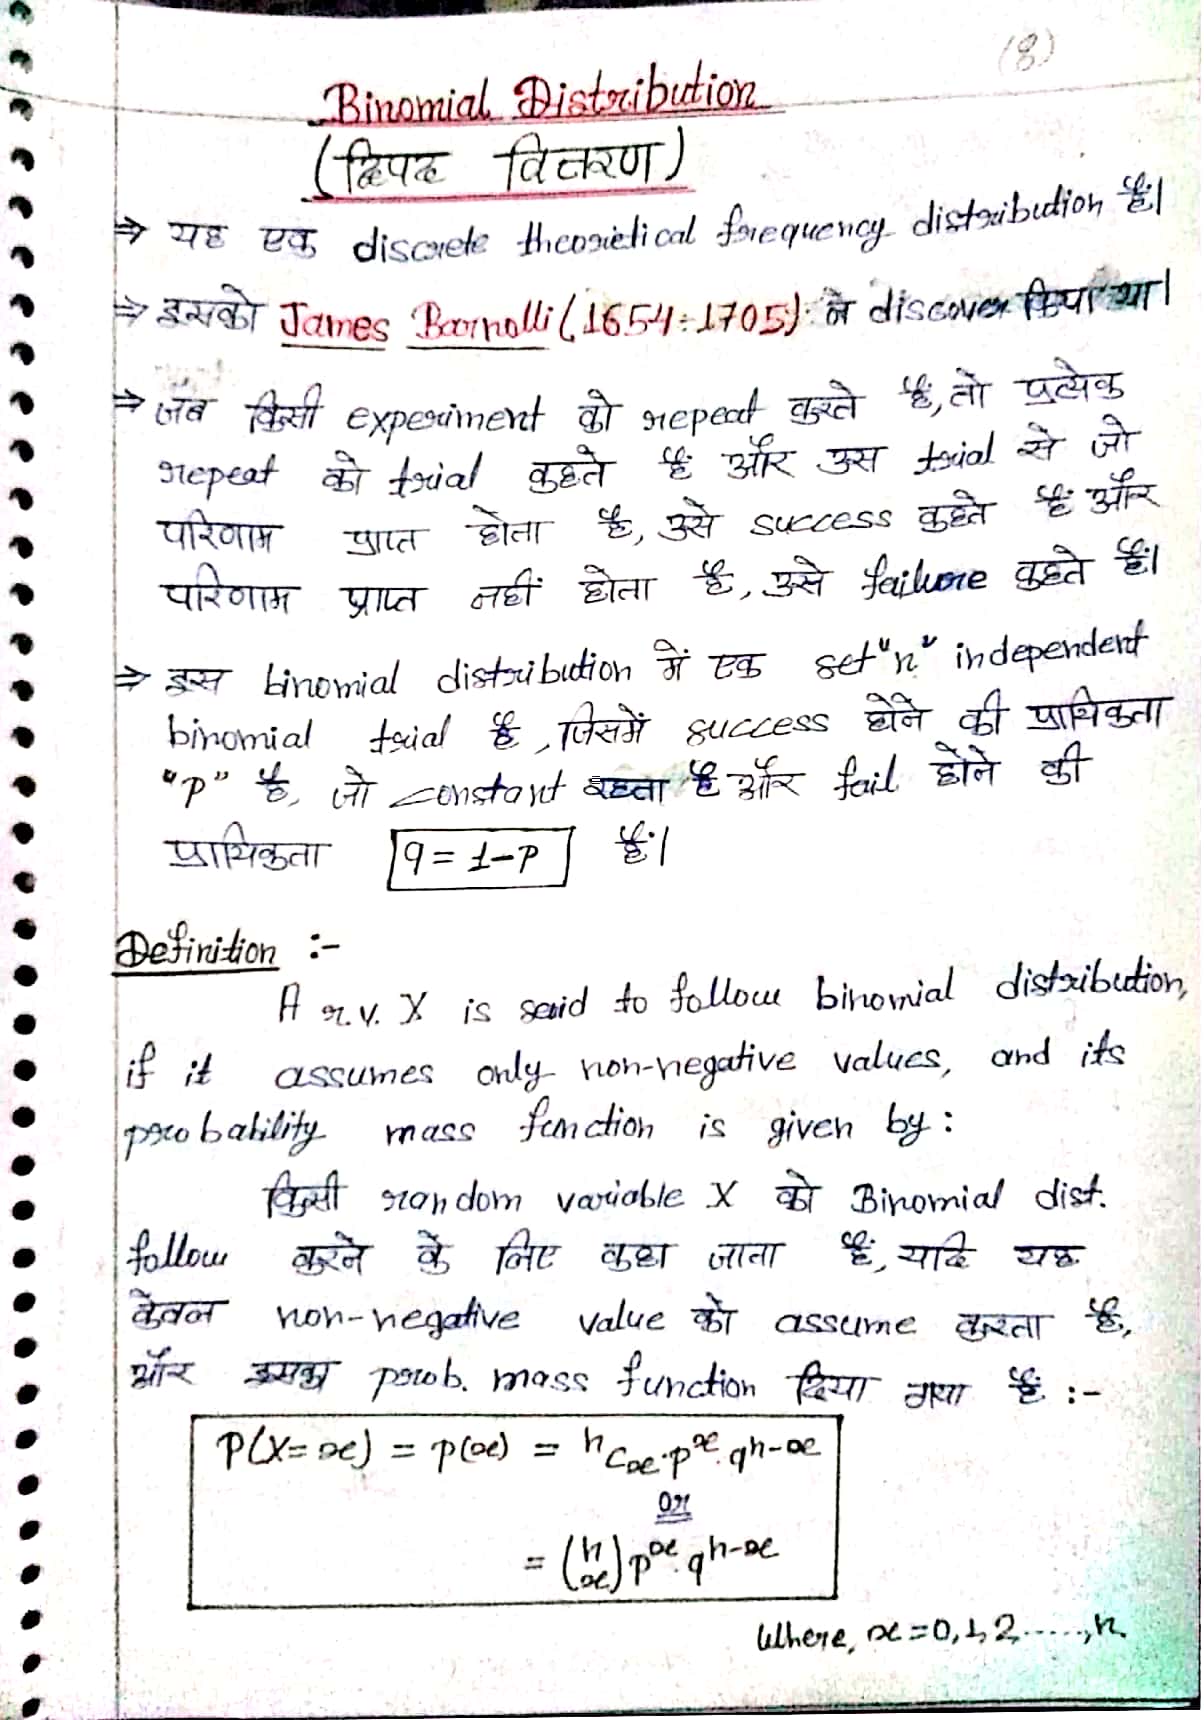 (8)
Binomial Distribution
(द्विपद वितरण)
⇒ यह एक discrete theoretical frequency distribution है।
⇒ इसको James Bornolli (1654-1705) ने discover किया था।
⇒ जब किसी experiment को repeat करते हैं, तो प्रत्येक
repeat को trial कहते हैं और उस trial से जो
परिणाम प्राप्त होता है, उसे success कहते हैं और
परिणाम प्राप्त नहीं होता है, उसे failure कहते हैं।
⇒ इस binomial distribution में एक set "n" independent
binomial trial है, जिसमें success होने की प्रायिकता
"p" है, जो constant रहता है और fail होने की
प्रायिकता q = 1-p है।
Definition :-
A r.v. X is said to follow binomial distribution,
if it assumes only non-negative values, and its
probability mass function is given by:
किसी random variable X को Binomial dist.
follow करने के लिए कहा जाता है, यदि यह
केवल non-negative value को assume करता है,
और इसका prob. mass function दिया गया है :-
P(X=x) = p(x) = ⁿCₓ·pˣ·qⁿ⁻ˣ
or
= (n x) pˣ·qⁿ⁻ˣ
Where, x=0,1,2.....,n.